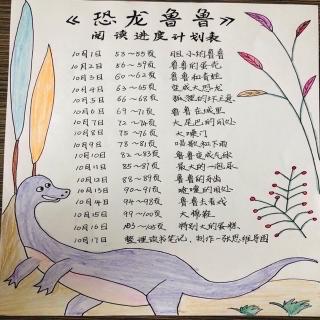 《恐龙鲁鲁》
阅读进度计划表
10月1日 53~55页 胆小的鲁鲁
10月2日 56~59页 鲁鲁的蛋壳
10月3日 60~62页 鲁鲁和青蛙
10月4日 63~65页 变成大恐龙
10月5日 66~68页 狐狸的坏主意
10月6日 69~71页 鲁鲁在城里
10月7日 72~74页 大尾巴的用处
10月8日 75~76页 大嗓门
10月9日 78~81页 唱歌和下雨
10月10日 82~83页 鲁鲁变成气球
10月11日 85~87页 最大的一泡尿
10月12日 88~89页 鲁鲁的牙齿
10月13日 90~91页 喷嚏的用处
10月14日 94~98页 鲁鲁去看戏
10月15日 99~100页 大棉鞋
10月16日 103~105页 特别大的蛋糕
10月17日 整理读书笔记,制作一张思维导图